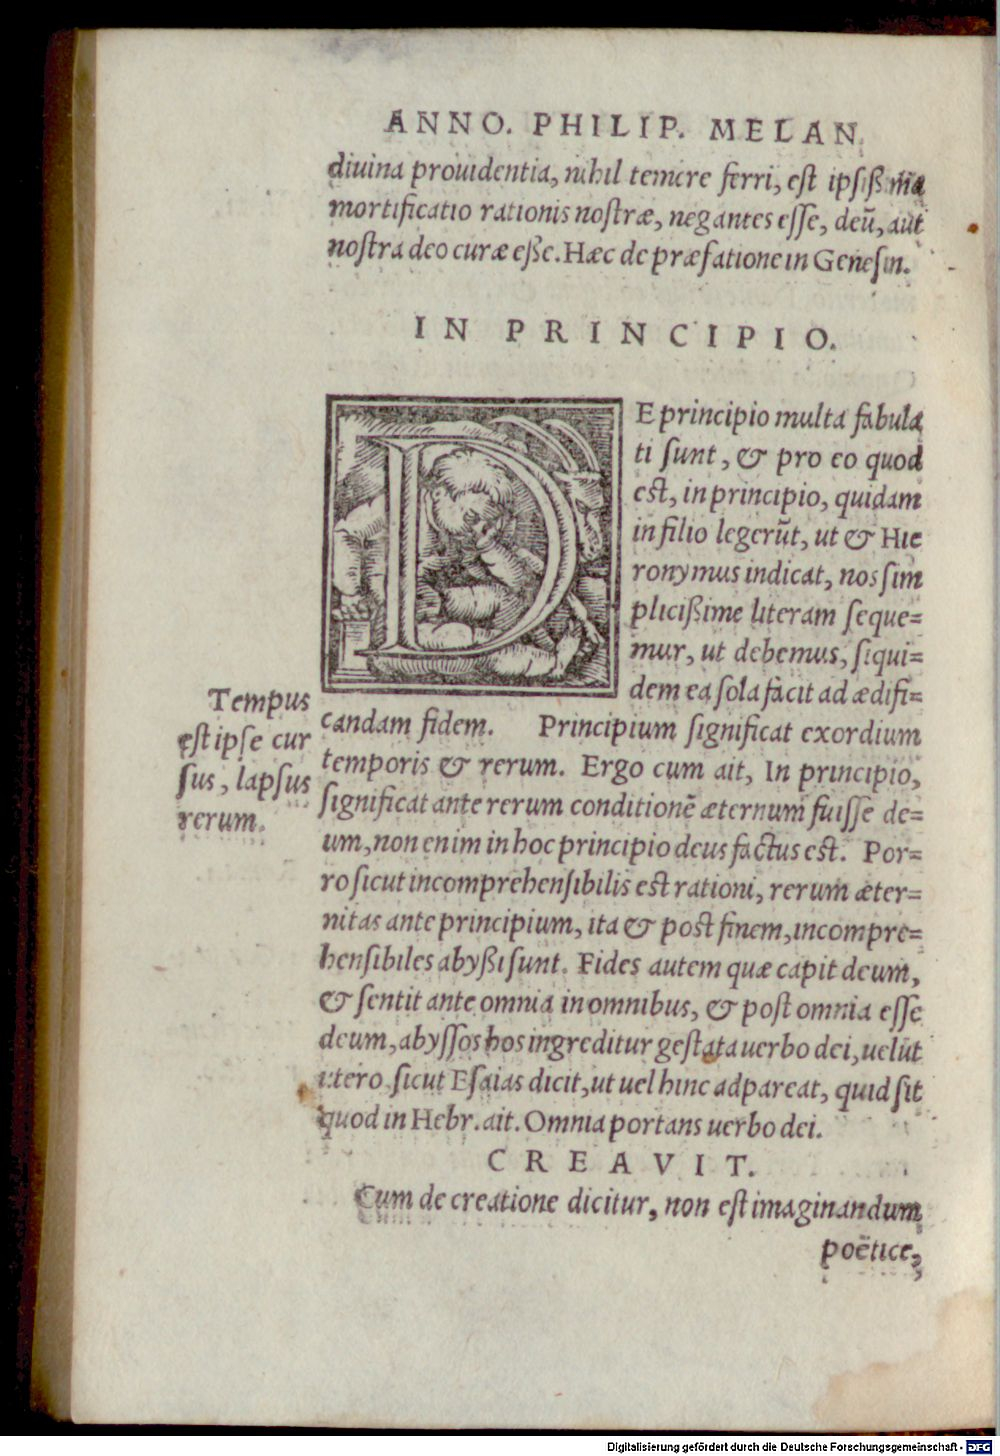 ANNO. PHILIP. MELAN
diuina prouidentia, nihil temere ferri, est ipsißima
mortificatio rationis nostræ, negantes esse, deũ, aut
nostra deo curæ eße. Hæc de præfatione in Genesin.
IN PRINCIPIO.
DE principio multa fabula
ti sunt, & pro eo quod
est, in principio, quidam
in filio legerũt, ut & Hie
ronymus indicat, nos sim
plicißime literam seque=
mur, ut debemus, siqui=
dem ea sola facit ad ædifi=
candam fidem. Principium significat exordium
temporis & rerum. Ergo cum ait, In principio,
significat ante rerum conditionẽ æternum fuisse de=
um, non enim in hoc principio deus factus est. Por=
ro sicut incomprehensibilis est rationi, rerum æter=
nitas ante principium, ita & post finem, incompre=
hensibiles abyßi sunt. Fides autem quæ capit deum,
& sentit ante omnia in omnibus, & post omnia esse
deum, abyssos hos ingreditur gestata uerbo dei, uelut
utero sicut Esaias dicit, ut uel hinc adpareat, quid sit
quod in Hebr. ait. Omnia portans uerbo dei.
Tempus
est ipse cur
sus, lapsus
rerum.
CREAVIT.
Cum de creatione dicitur, non est imaginandum
poëtice,
Digitalisierung gefördert durch die Deutsche Forschungsgemeinschaft - DFG